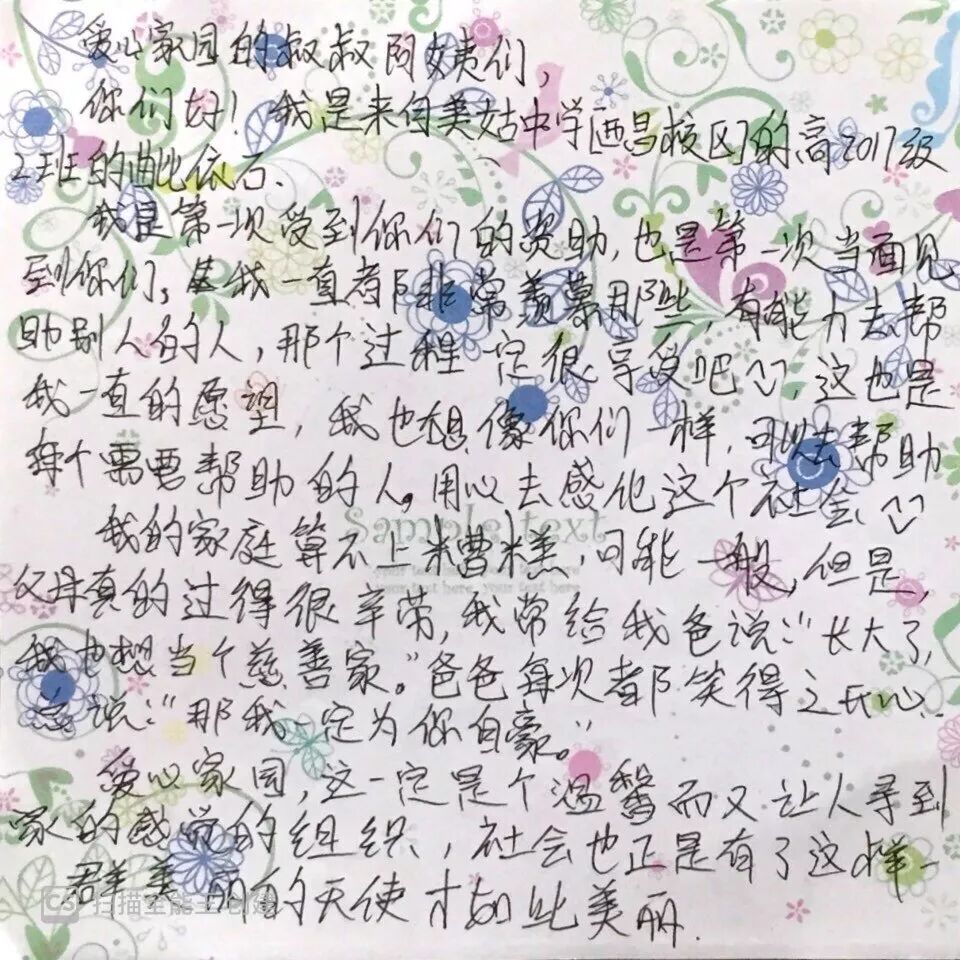 爱心家园的叔叔阿姨们，
你们好！我是来自美姑中学[西昌校区]的高2017级
2班的曲比依石.
我是第一次受到你们的资助，也是第一次当面见
到你们。我一直都非常羡慕那些，有能力去帮
助别人的人，那个过程一定很享受吧，这也是
我一直的愿望，我也想像你们一样，可以去帮助
每个需要帮助的人。用心去感化这个社会
Sample text
我的家庭算不上糟糕，可能一般，但是，
your text here, your text here
父母真的过得很辛劳，我常给我爸说：“长大了，
我也想当个慈善家。”爸爸每次都笑得之开心..
总说：“那我一定为你自豪。”
爱心家园，这一定是个温馨而又让人寻到
家的感觉的组织，社会也正是有了这样一
群美丽的天使才如此美丽.
CS 扫描全能王 创建